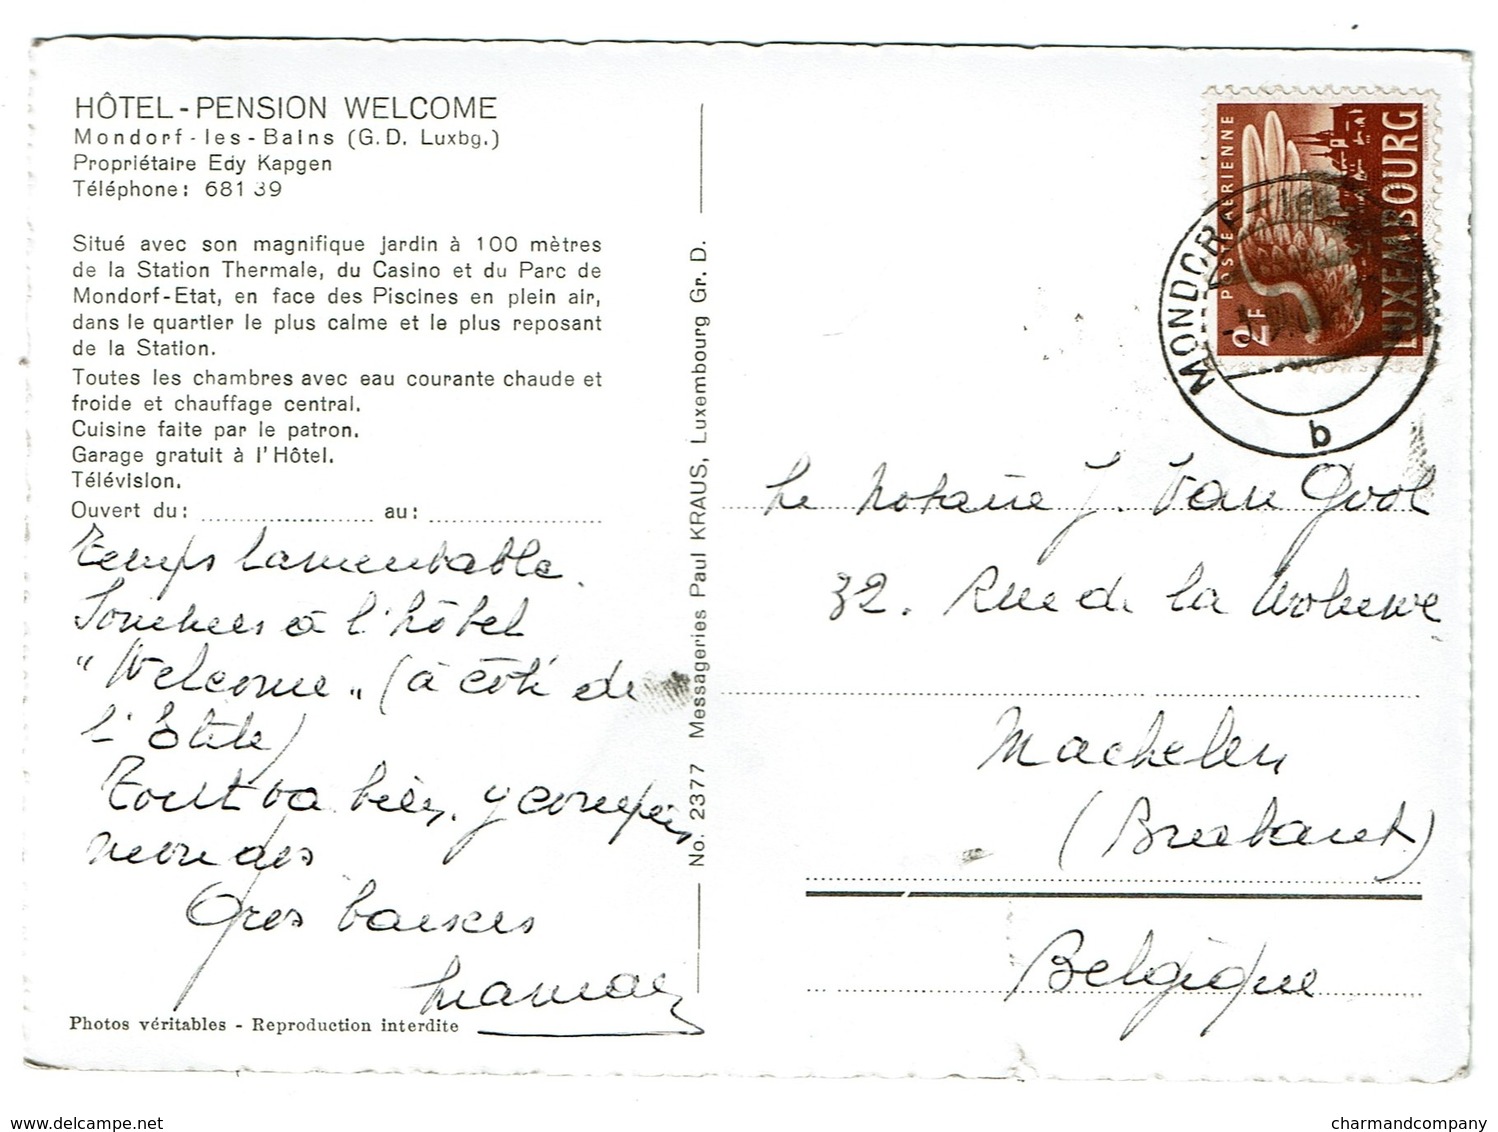 HÔTEL-PENSION WELCOME
Mondorf-les-Bains (G.D. Luxbg.)
Propriétaire Edy Kapgen
Téléphone: 681 39
Situé avec son magnifique jardin à 100 mètres
de la Station Thermale, du Casino et du Parc de
Mondorf-Etat, en face des Piscines en plein air,
dans le quartier le plus calme et le plus reposant
de la Station.
Toutes les chambres avec eau courante chaude et
froide et chauffage central.
Cuisine faite par le patron.
Garage gratuit à l'Hôtel.
Télévision.
Ouvert du: .................... au: ....................
Temps lamentable.
Sommes à l'hôtel
"Welcome" (à côté de
l'Etite)
Tout va bien, y compris
Gros baisers
Maman
Photos véritables - Reproduction interdite
No. 2377 Messageries Paul KRAUS, Luxembourg Gr. D.
POSTE AÉRIENNE
LUXEMBOURG
2F
MONDORF-les
b
Le Notaire J. Van Gool
32. Rue de la Woluwe
Machelen
(Brabant)
Belgique
www.delcampe.net
charmandcompany